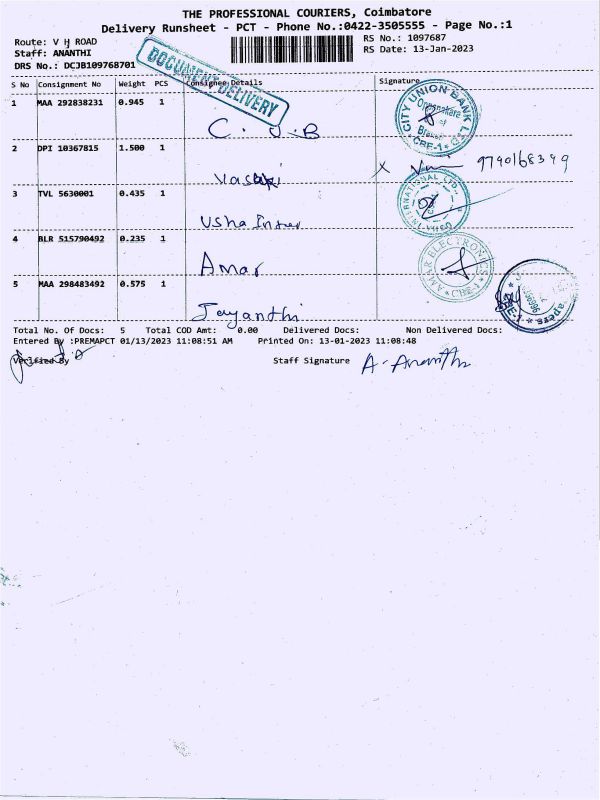 THE PROFESSIONAL COURIERS, Coimbatore
Delivery Runsheet - PCT - Phone No.:0422-3505555 - Page No.:1
Route: V H ROAD
RS No.: 1097687
Staff: ANANTHI
RS Date: 13-Jan-2023
DRS No.: DCJB109768701
DOCUMENT DELIVERY
S No Consignment No Weight PCS Consignee Details Signature
1 MAA 292838231 0.945 1
C.U.B
CITY UNION BANK LTD CBE-1
2 DPI 10367815 1.500 1
Vasuki
9790168349
3 TVL 5630001 0.435 1
Usha Inter
USHA INTERNATIONAL LTD.,
4 BLR 515790492 0.235 1
Amar
AMAR ELECTRONICS CBE-1
5 MAA 298483492 0.575 1
Jayanthi
CBE-1
Total No. Of Docs: 5 Total COD Amt: 0.00 Delivered Docs: Non Delivered Docs:
Entered By :PREMAPCT 01/13/2023 11:08:51 AM Printed On: 13-01-2023 11:08:48
Verified By
Staff Signature A. Ananthi